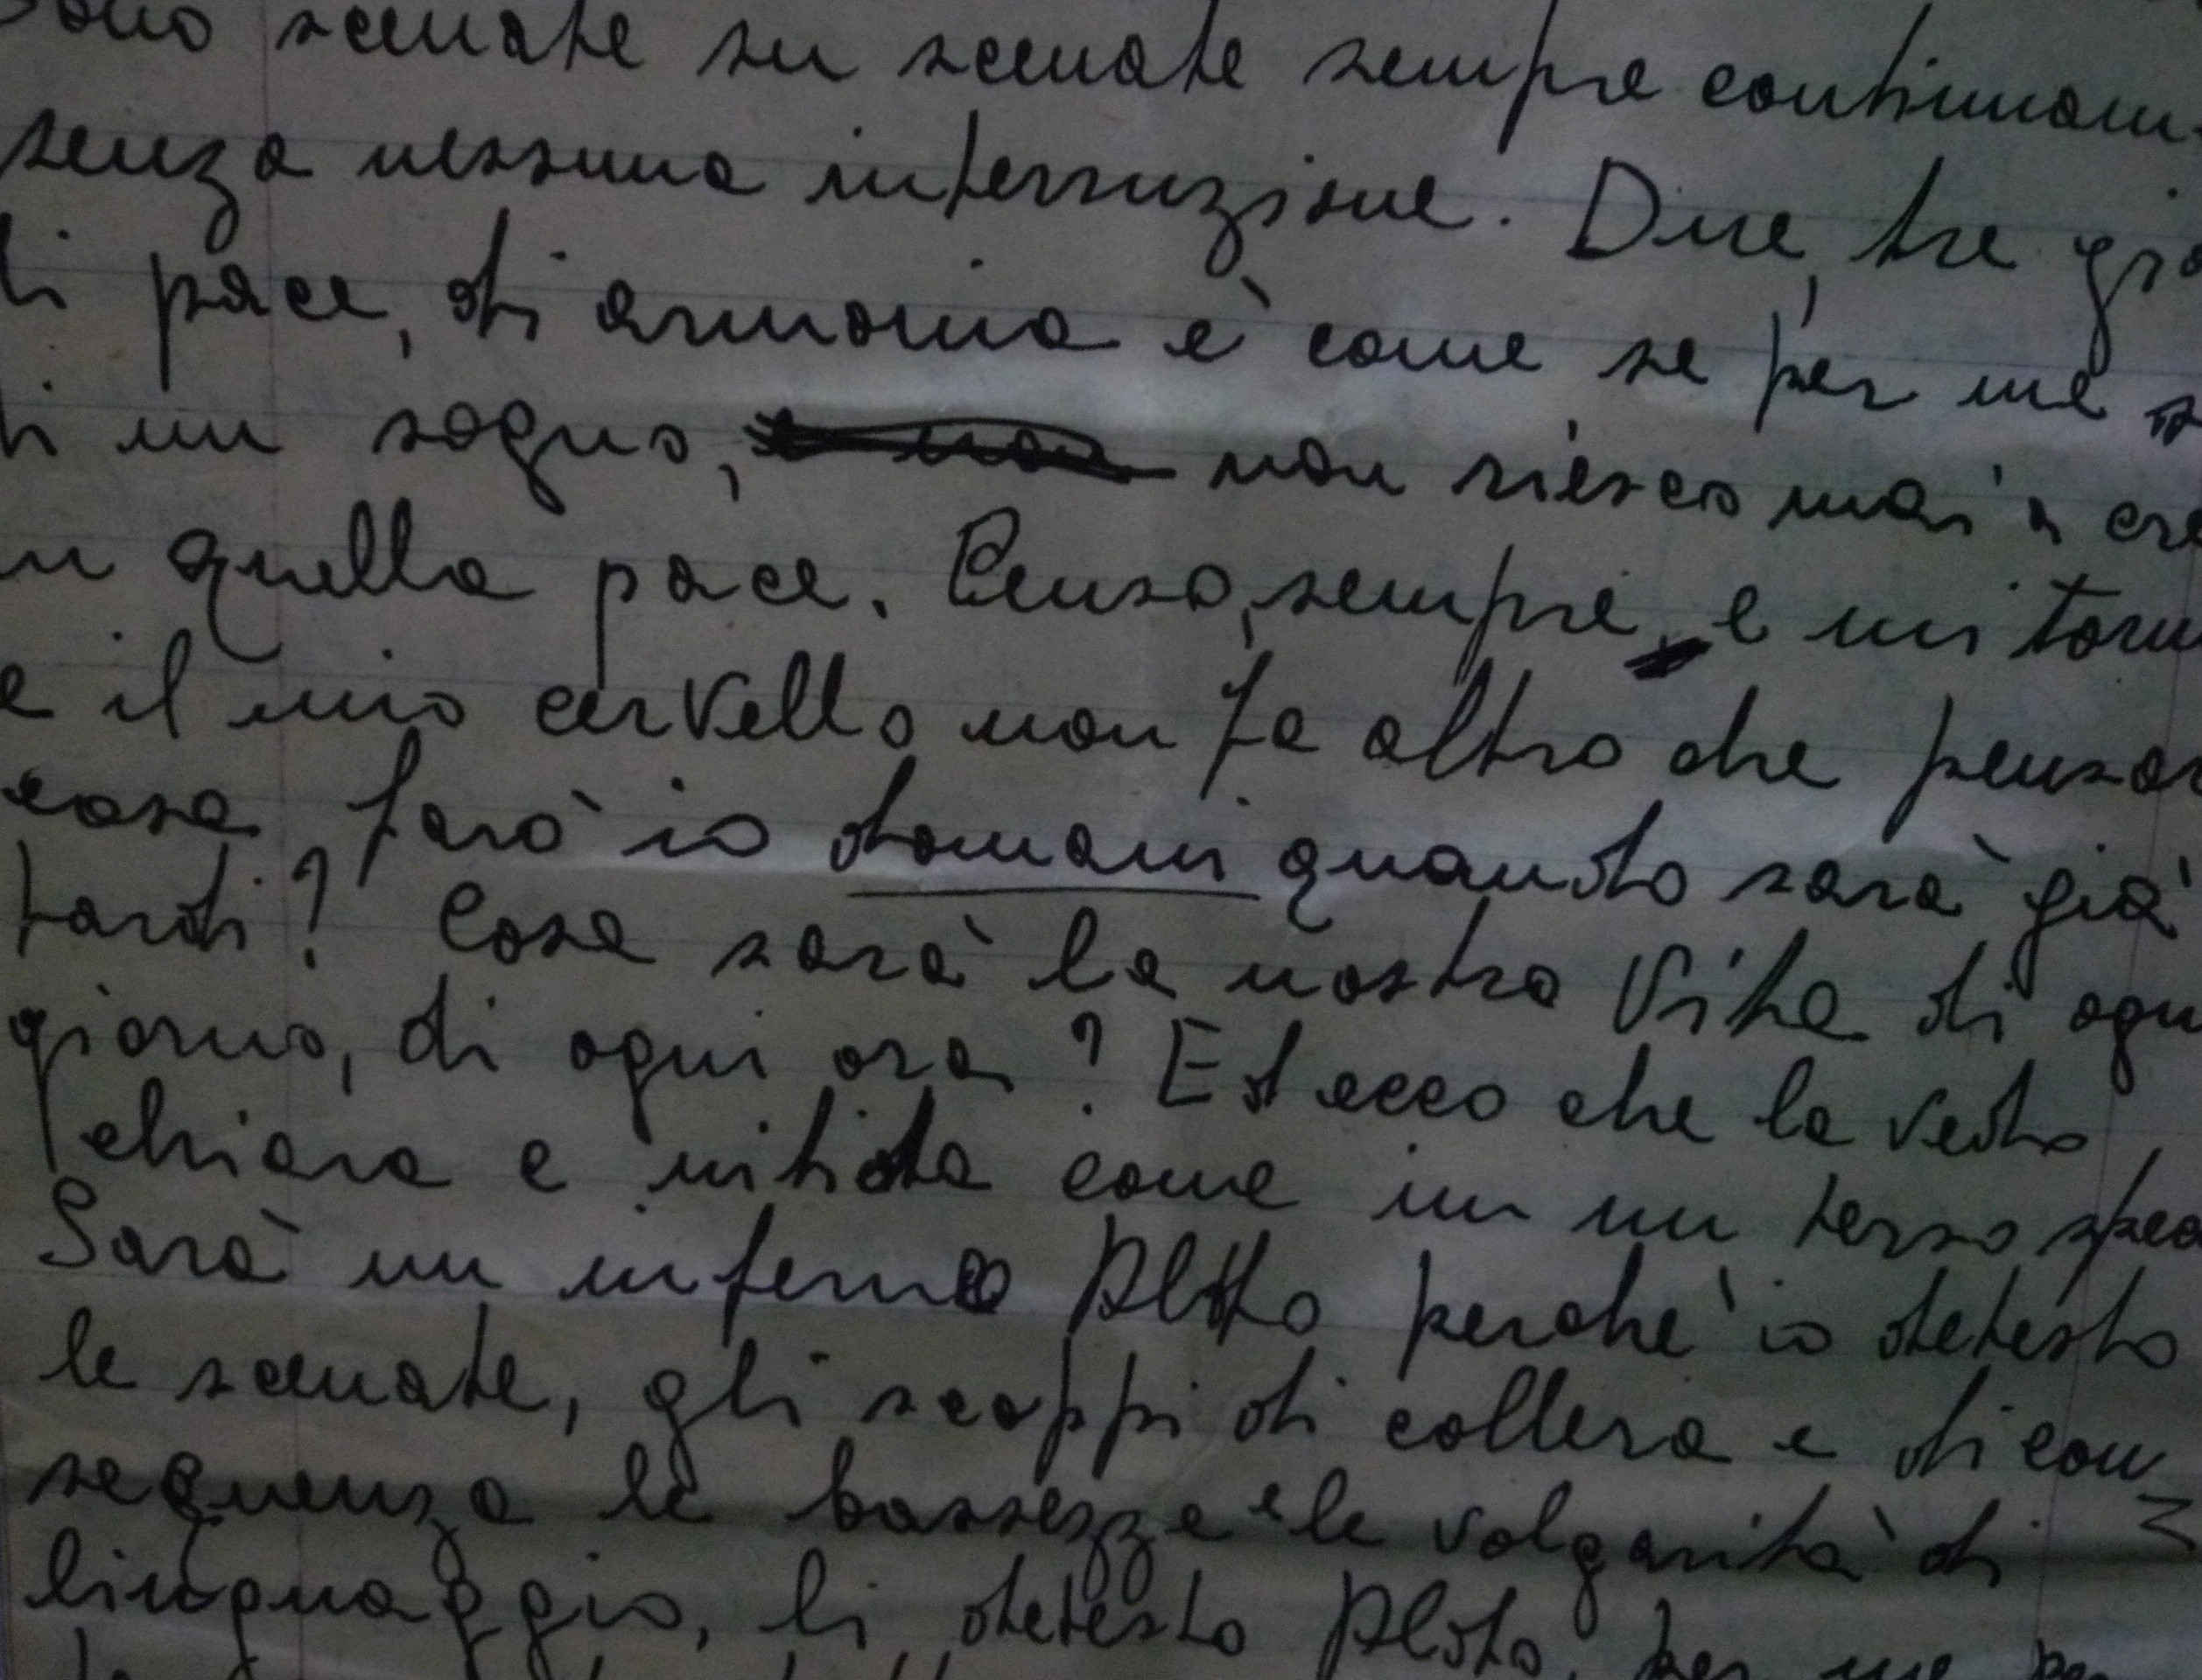 sono scenate su scenate sempre continuam
senza nessuna interruzione. Due, tre gio
di pace, di armonia è come se per me s
di un sogno, non riesco mai a cre
in quella pace. Penso, sempre e mi torn
e il mio cervello non fa altro che pensar
cosa farò io domani quando sarà già
tardi? Cosa sarà la nostra vita di ogn
giorno, di ogni ora? Ed ecco che la vedo
chiara e nitida come in un terso spec
Sarà un inferno Aldo perchè io detesto
le scenate, gli scoppi di collera e di con
sequenza le bassezze e le volgarità di
linguaggio, li detesto Aldo, per me